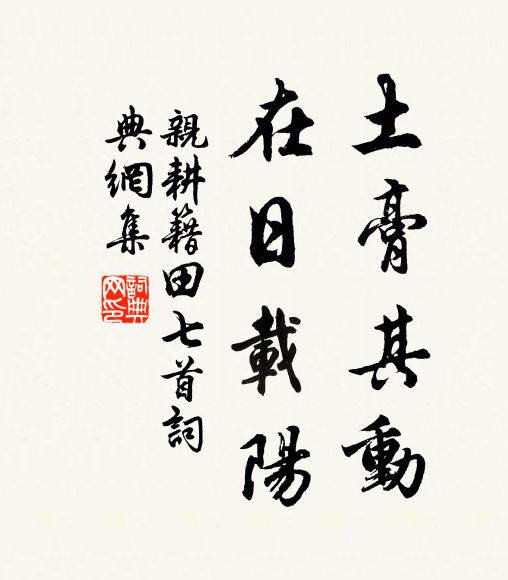 土膏其動
在日載陽
親耕籍田七首詞
典網集
詞典
网印